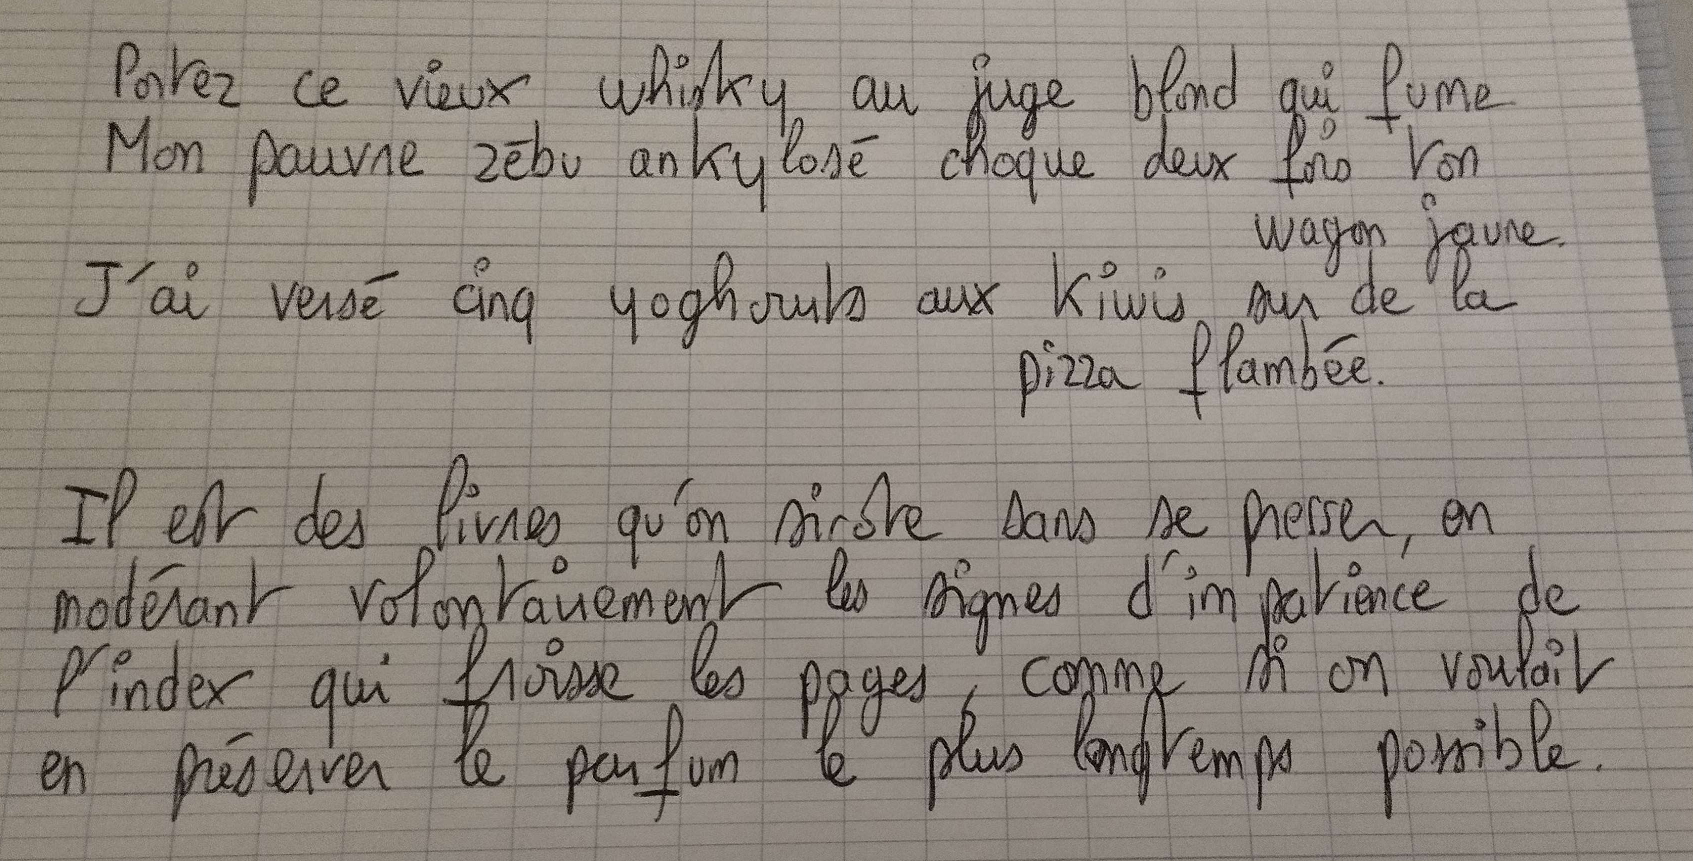 Portez ce vieux whisky au juge blond qui fume
Mon pauvre zébu ankylosé choque deux fois ton
wagon jaune.
J'ai versé cinq yoghourts aux kiwis sur de la
pizza flambée.
Il est des livres qu'on sirote sans se presser, en
modérant volontairement les signes d'impatience de
l'index qui froisse les pages, comme si on voulait
en préserver le parfum le plus longtemps possible.